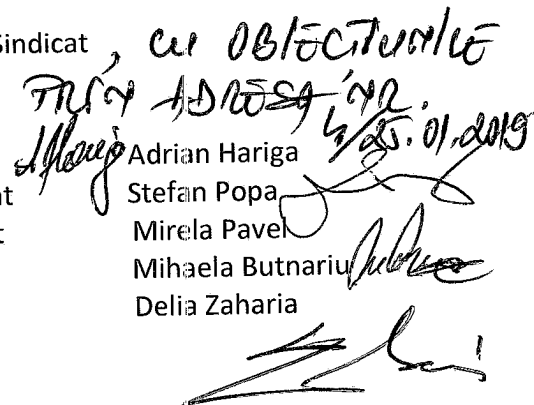 Sindicat, CU OBIECTIUNILE
PRIN ADRESA NR.
4/25.01.2019
Adrian Hariga
Stefan Popa
Mirela Pavel
Mihaela Butnariu
Delia Zaharia